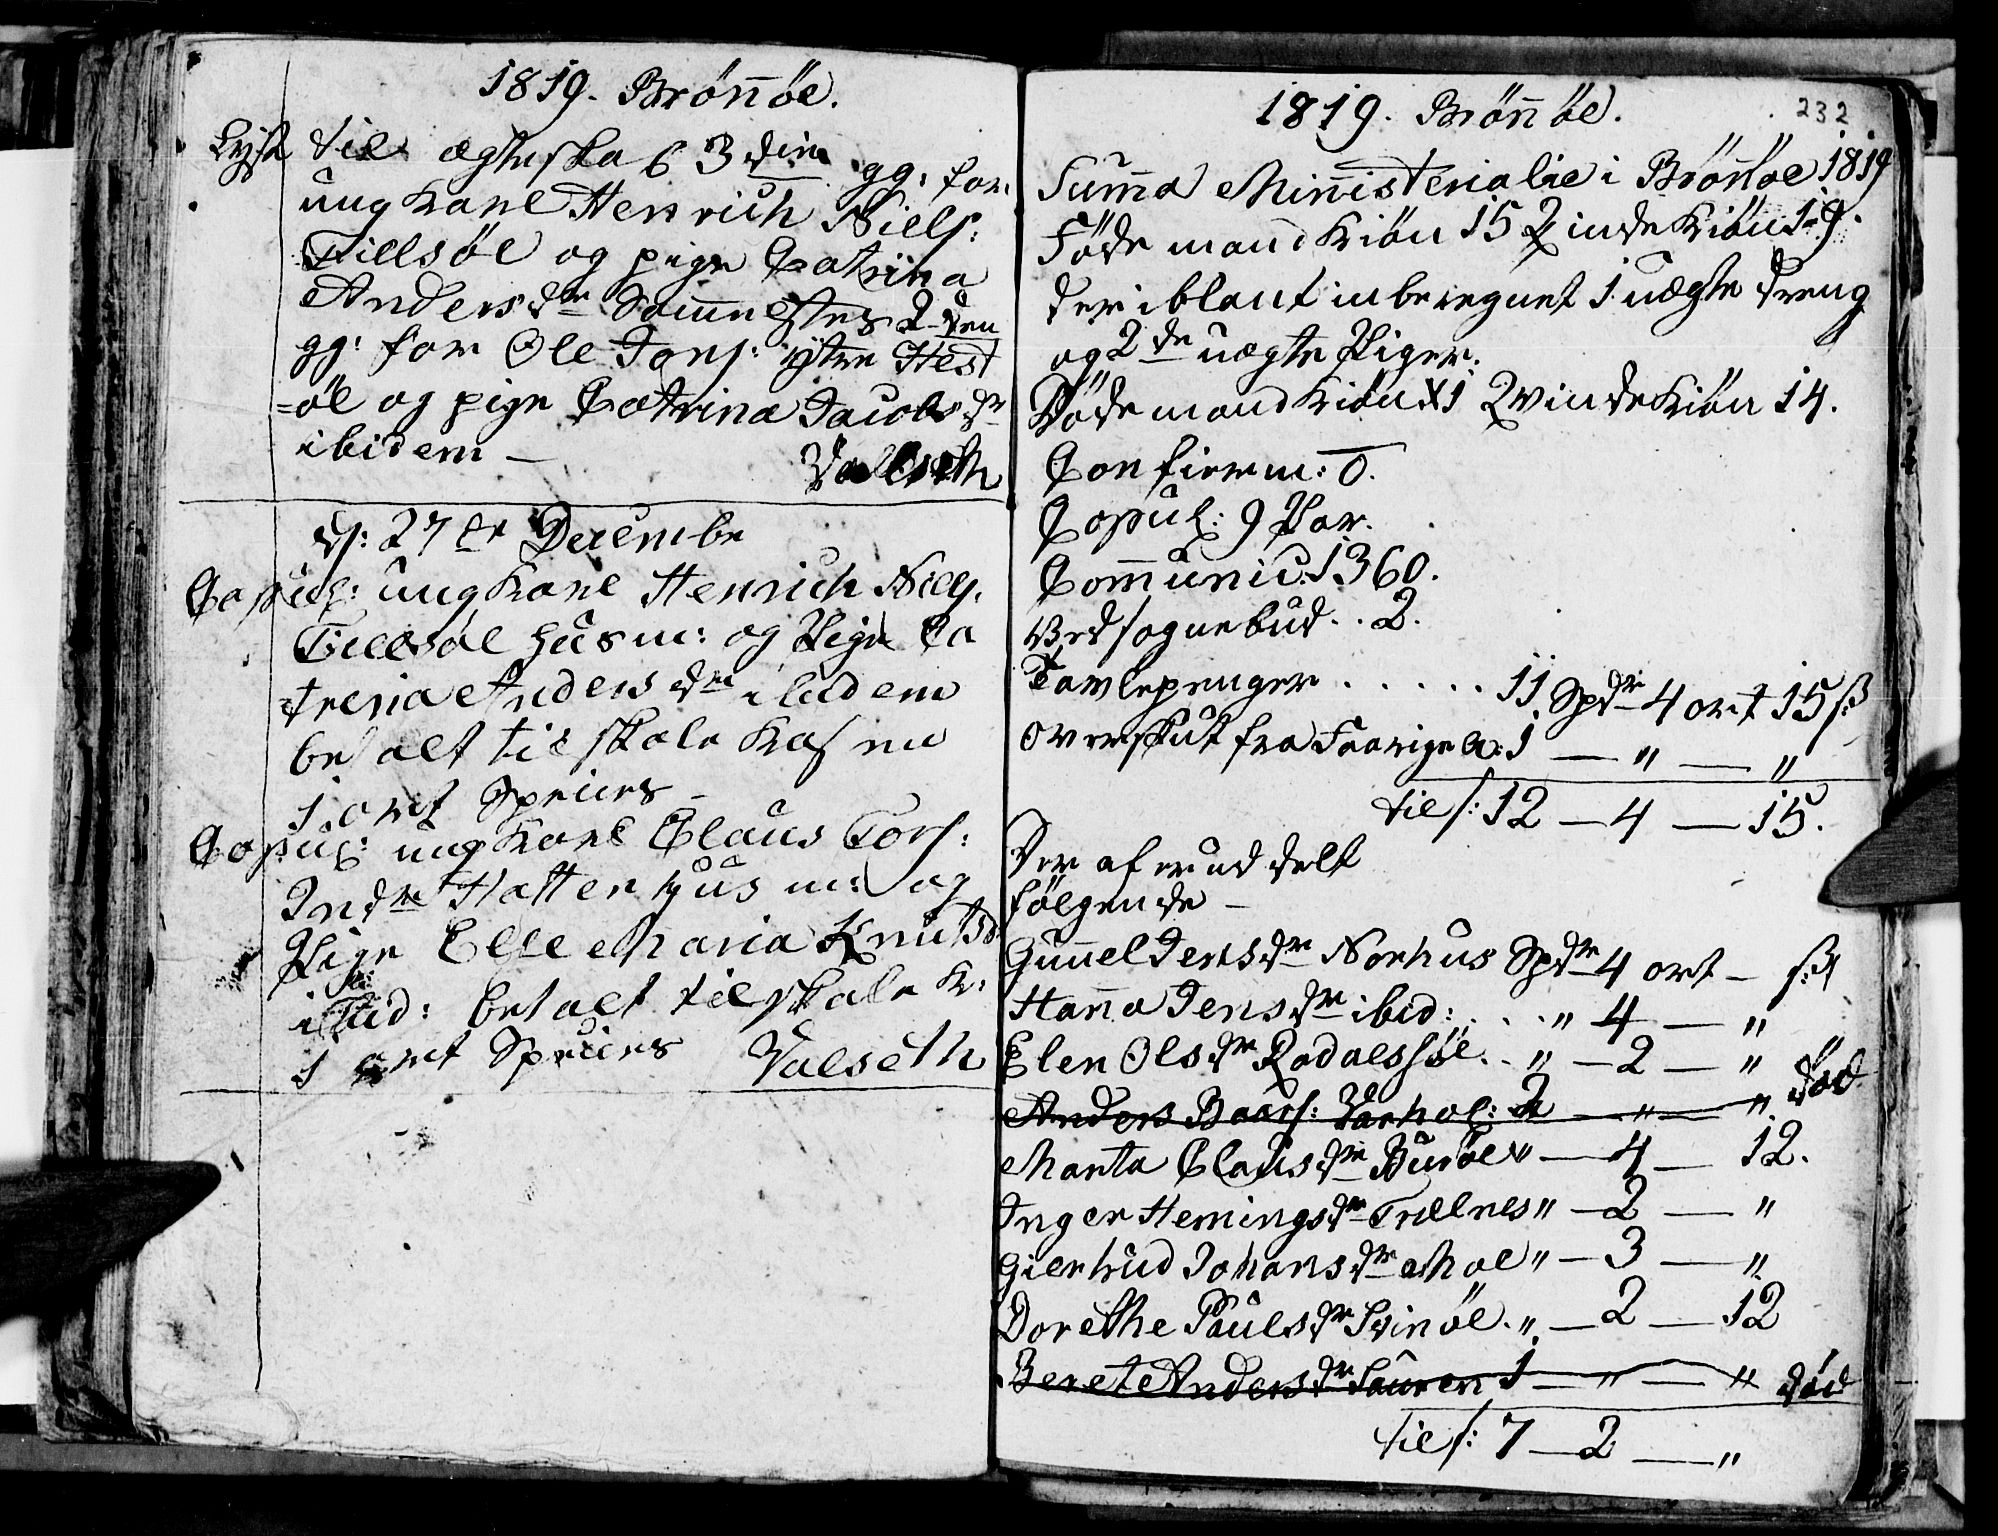 1819. Brönöe.
Lyst til ægteskab 3die gg: for
ungkarl Henrich Niels:
Tillsöe og pige Catrina
Andersdr Sømnestes 2den
gg: for Ole Jons: ÿtre Hest
=öe og pige Catrina Jacobsdr
ibidem –
Valseth
ds: 27de Decembr
Copul: ungkarl Henrich Niels:
Tillsøe husm: og Pige Ca
trina Andersdr ibidem
betalt til skole Kassen
1 ort Species –
Copul: ungkarl Claus Tors:
Indre Hatten husm: og
Pige Else Maria Knutsd:
ibid: betalt til skole K:
1 ort Species Valseth
1819. Brönöe.
232
Summa Ministerialie i Brönöe 1819
Föde mandkiön 15 Qvindekiön 19.
deriblant inberegnet 1 uægte dreng
og 2de uægte Piger.
Döde mandkiön 11 Qvindekiön 14.
Confierm: 0.
Copul: 9 Par.
Communic: 1360.
Ved sognebud . . 2.
Tavlepenger . . . . . 11 Spdr 4 ort 15 s:
Overskut fra Forrige A: 1 – " – "
til s: 12 – 4 – 15.
Der af er uddelt
fölgende –
Gunnel Jensdr Norhus Spdr 4 ort – s:
Hanna Jensdr ibid: . . . " 4 – "
Elen Olsdr Rodalssöe . . " – 2 – "
Anders Baars: Varhol: 2 – " – " död
Marta Clausdr Buröe " – 4 – 12.
Inger Hemingsdr Trælnes " – 2 – "
Giertrud Johansdr Moe " – 3 – "
Dorethe Paulsdr Svinöe . " – 2 – 12
Beret Andersdr Sauren 1 – " – " död
til s: 7 – 2 – "